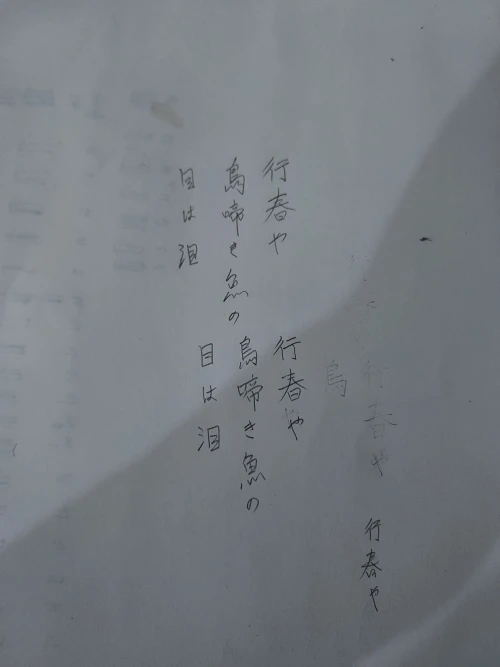 行春や
鳥啼き魚の
目は泪
行春や
鳥啼き魚の
目は泪
行春や
鳥
行春や